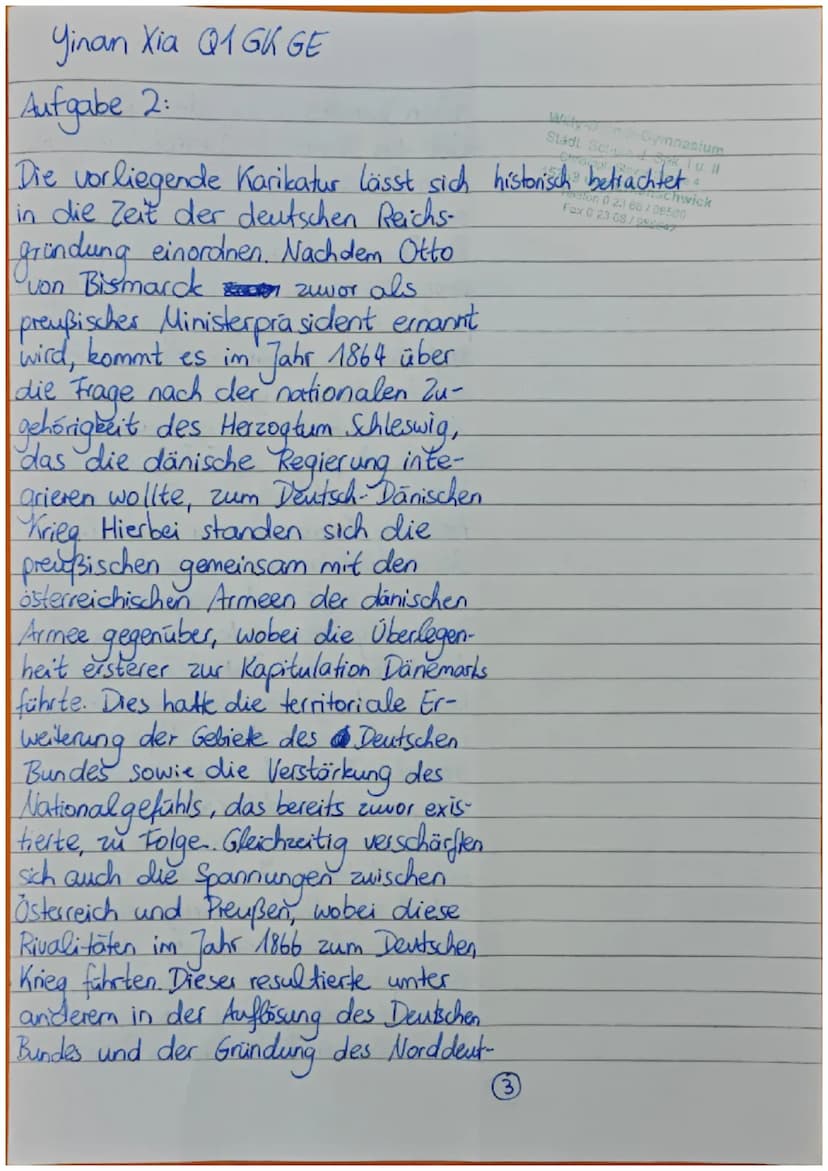 Yinan Xia Q1 GK GE
Aufgabe 2:
Gymnasium
Städt.
Die vorliegende Karikatur lässt sich historisch betrachtet
in die Zeit der deutschen Reichs-
gründung einordnen. Nachdem Otto
von Bismarck zuvor als
preußisches Ministerpräsident ernannt
wird, kommt es im Jahr 1864 über
die Frage nach der nationalen Zu-
gehörigkeit des Herzogtum Schleswig,
das die dänische Regierung inte-
grieren wollte, zum Deutsch-Dänischen
Krieg. Hierbei standen sich die
preußischen gemeinsam mit den
österreichischen Armeen der dänischen
Armee gegenüber, wobei die Überlegen-
heit ersterer zur Kapitulation Dänemarks
führte. Dies hatte die territoriale Er-
weiterung der Gebiete des Deutschen
Bundes sowie die Verstärkung des
Nationalgefühls, das bereits zuvor exis-
tierte, zu Folge. Gleichzeitig verschärften
sich auch die Spannungen zwischen
Österreich und Preußen, wobei diese
Rivalitäten im Jahr 1866 zum Deutschen
Krieg führten. Dieser resultierte unter
anderem in der Auflösung des Deutschen
Bundes und der Gründung des Norddeut-
3